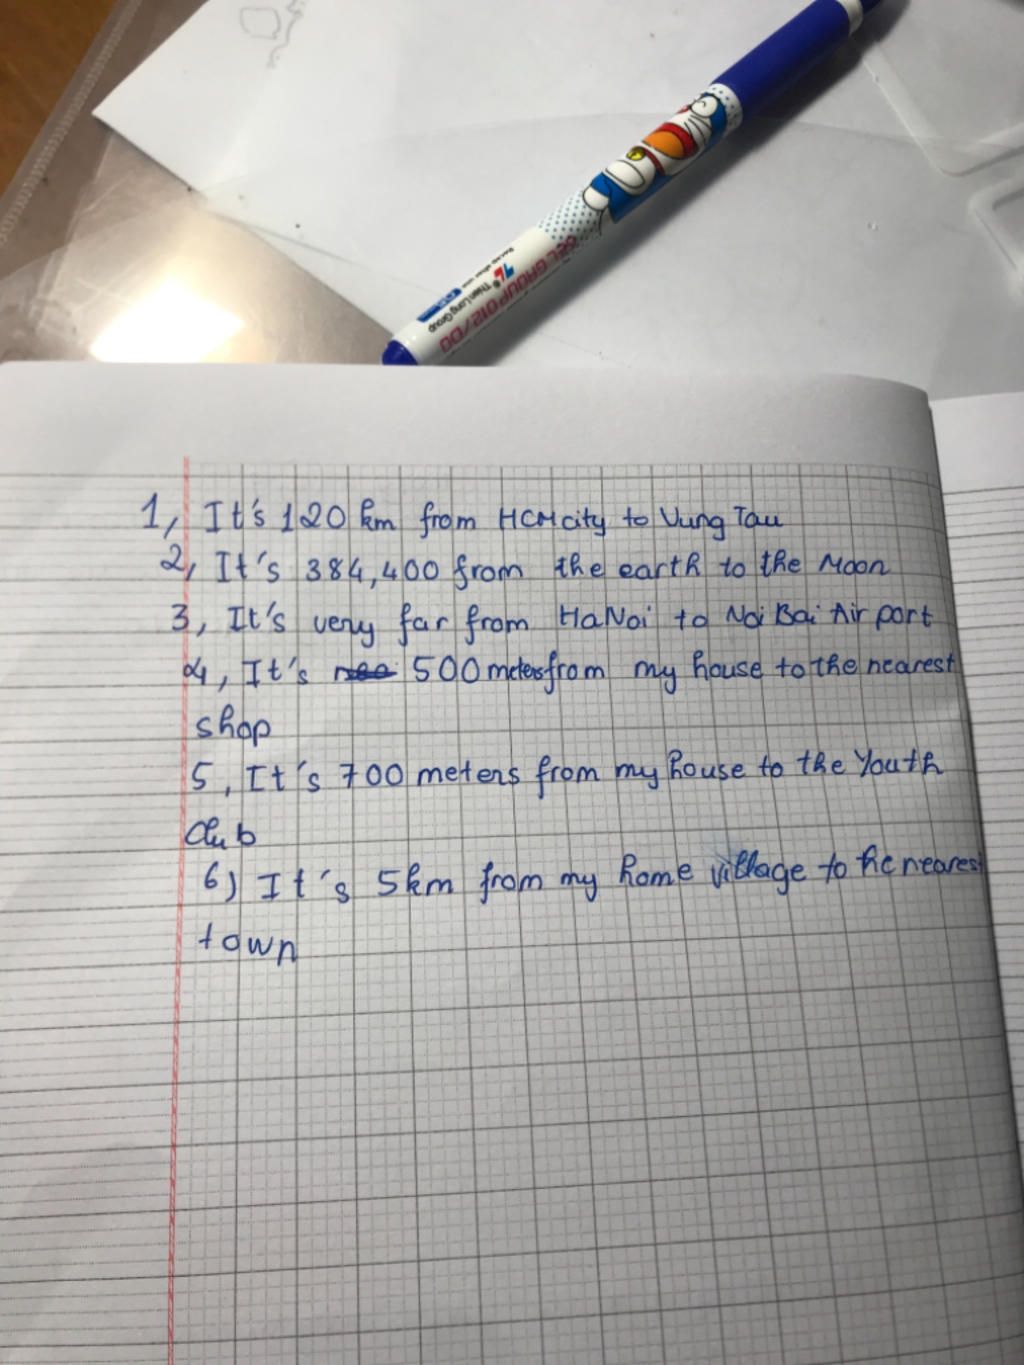 GEL GROUP 012/DO
Thien Long Group
TL
1, It's 120 km from HCM city to Vung Tau
2, It's 384,400 from the earth to the Moon
3, It's very far from HaNoi to Noi Bai Air port
4, It's 500 meters from my house to the nearest
shop
5, It's 700 meters from my house to the Youth
Club
6) It's 5km from my home village to the nearest
town